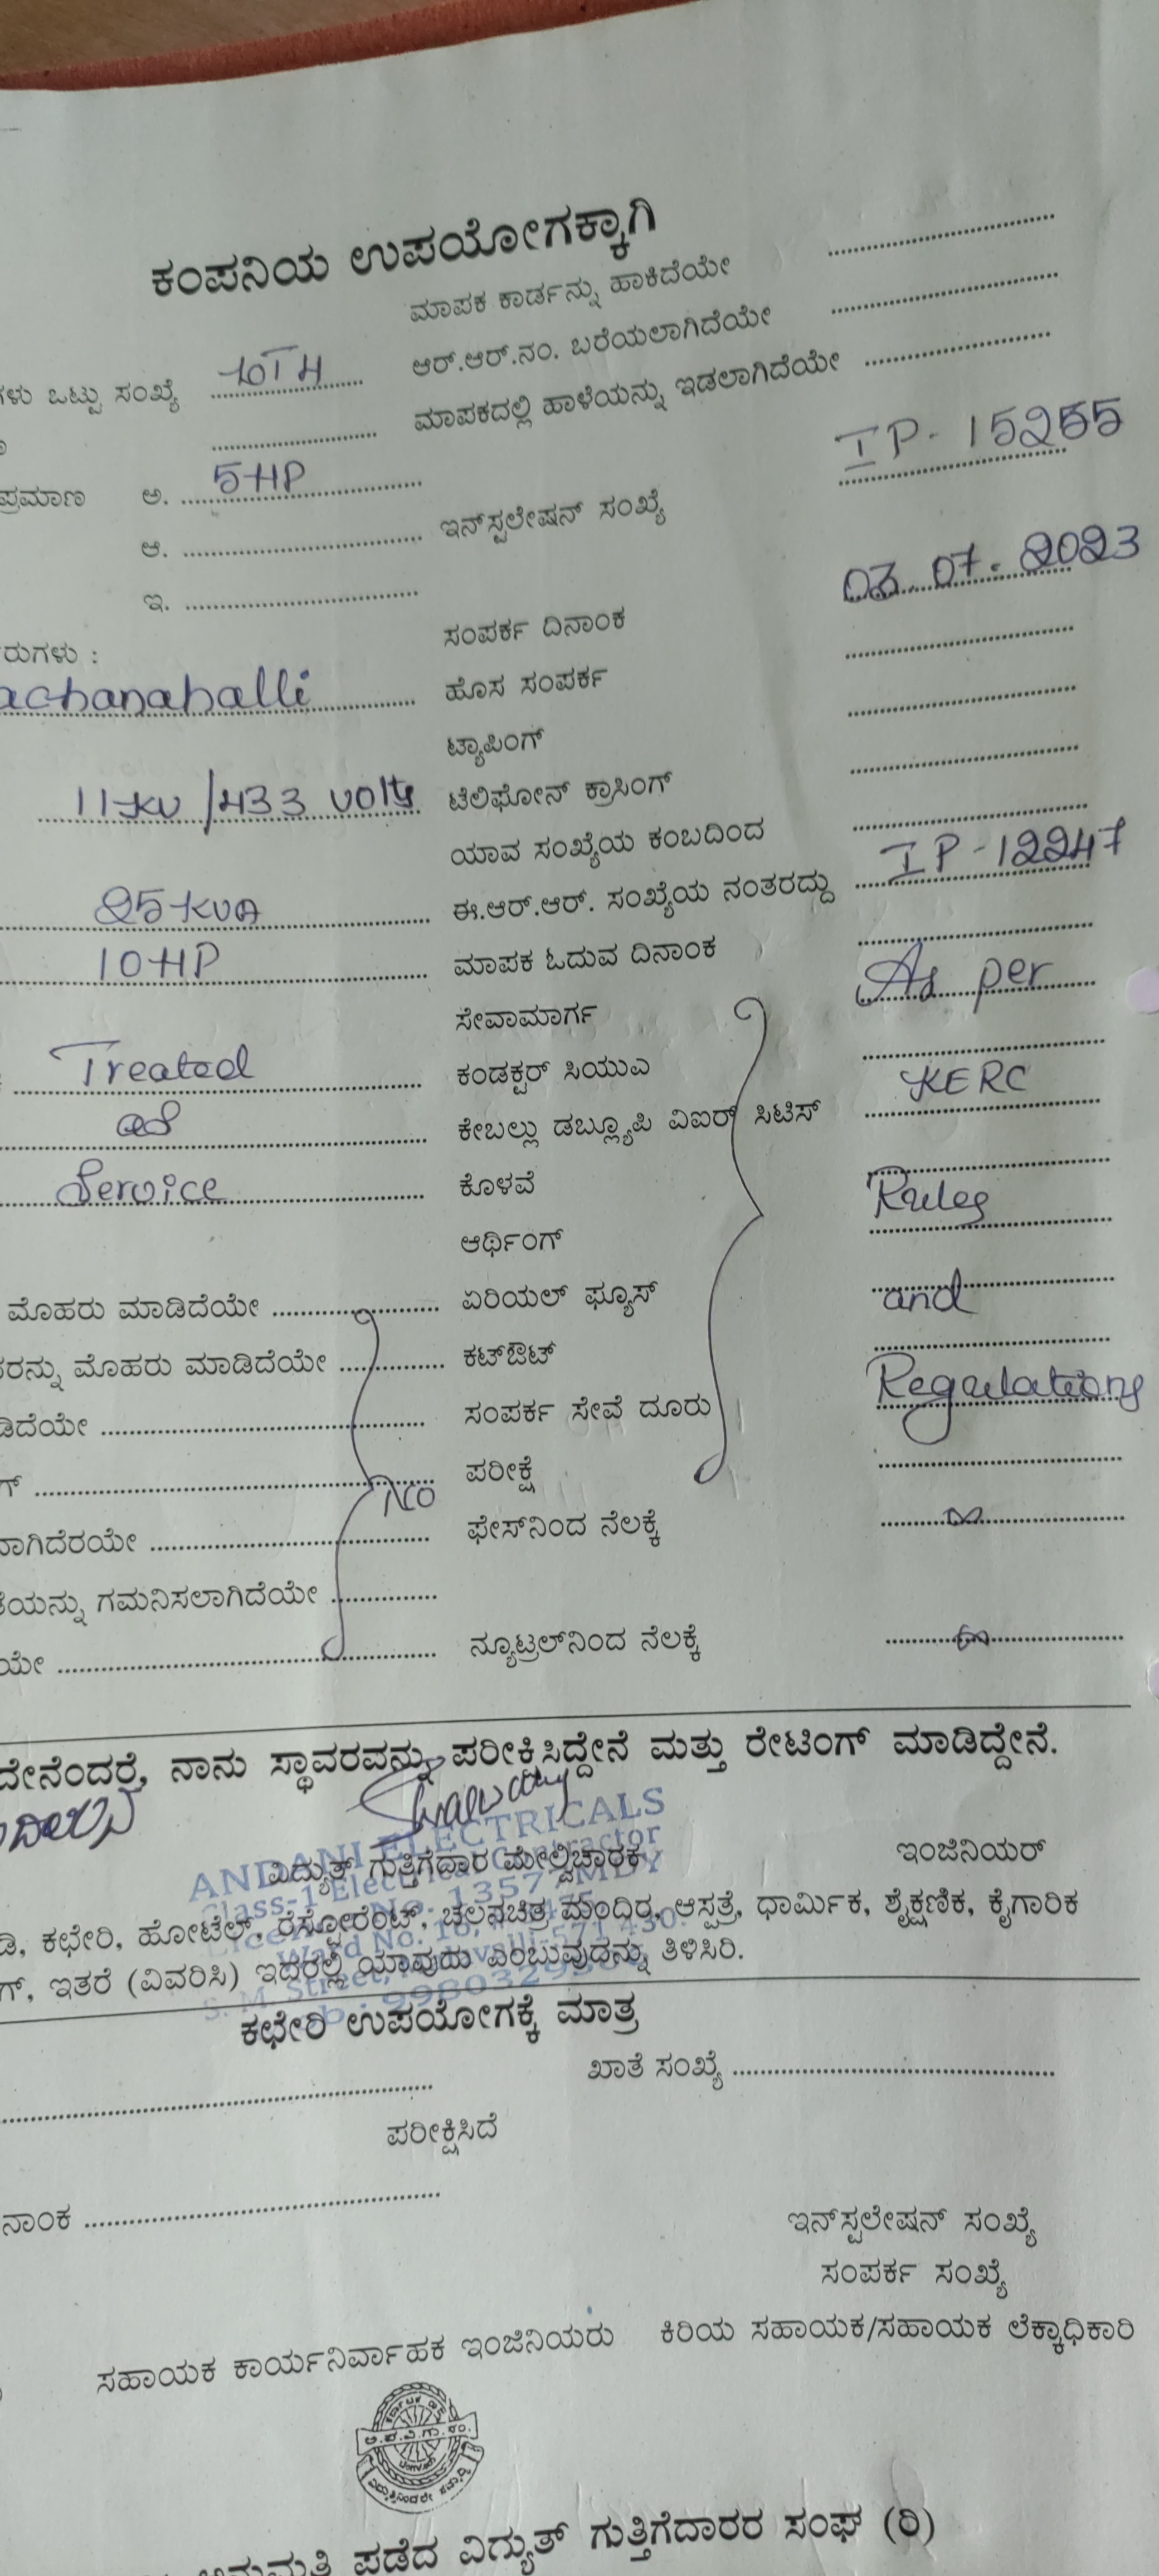 ಕಂಪನಿಯ ಉಪಯೋಗಕ್ಕಾಗಿ
ಮಾಪಕ ಕಾರ್ಡನ್ನು ಹಾಕಿದೆಯೇ
ಗಳು ಒಟ್ಟು ಸಂಖ್ಯೆ ಆರ್.ಆರ್.ನಂ. ಬರೆಯಲಾಗಿದೆಯೇ
ಮಾಪಕದಲ್ಲಿ ಹಾಳೆಯನ್ನು ಇಡಲಾಗಿದೆಯೇ
ಪ್ರಮಾಣ ಅ. 5HP IP-15255
ಆ. ಇನ್‌ಸ್ಟಲೇಷನ್ ಸಂಖ್ಯೆ
ಇ. 03.07.2023
ರುಗಳು : ಸಂಪರ್ಕ ದಿನಾಂಕ
achanahalli ಹೊಸ ಸಂಪರ್ಕ
ಟ್ಯಾಪಿಂಗ್
11KV/433 volts ಟೆಲಿಫೋನ್ ಕ್ರಾಸಿಂಗ್
ಯಾವ ಸಂಖ್ಯೆಯ ಕಂಬದಿಂದ
25KVA ಈ.ಆರ್.ಆರ್. ಸಂಖ್ಯೆಯ ನಂತರದ್ದು IP-12247
10HP ಮಾಪಕ ಓದುವ ದಿನಾಂಕ
ಸೇವಾಮಾರ್ಗ As per
Treated ಕಂಡಕ್ಟರ್ ಸಿಯುಎ
as ಕೇಬಲ್ಲು ಡಬ್ಲ್ಯೂಪಿ ವಿಐರ್ ಸಿಟಿಸ್ KERC
Service ಕೊಳವೆ Rules
ಆರ್ಥಿಂಗ್
ಮೊಹರು ಮಾಡಿದೆಯೇ ಏರಿಯಲ್ ಫ್ಯೂಸ್ and
ರನ್ನು ಮೊಹರು ಮಾಡಿದೆಯೇ ಕಟ್‌ಔಟ್
ಡಿದೆಯೇ ಸಂಪರ್ಕ ಸೇವೆ ದೂರು Regulations
ಗ್ No ಪರೀಕ್ಷೆ
ವಾಗಿದೆರಯೇ ಫೇಸ್‌ನಿಂದ ನೆಲಕ್ಕೆ ∞
ಯನ್ನು ಗಮನಿಸಲಾಗಿದೆಯೇ
ಯೇ ನ್ಯೂಟ್ರಲ್‌ನಿಂದ ನೆಲಕ್ಕೆ
ದೇನೆಂದರೆ, ನಾನು ಸ್ಥಾವರವನ್ನು ಪರೀಕ್ಷಿಸಿದ್ದೇನೆ ಮತ್ತು ರೇಟಿಂಗ್ ಮಾಡಿದ್ದೇನೆ.
ANDANI ELECTRICALS
Class-1 Electrical Contractor
ವಿದ್ಯುತ್ ಗುತ್ತಿಗೆದಾರ ಮೇಲ್ವಿಚಾರಕ ಇಂಜಿನಿಯರ್
ಡಿ, ಕಛೇರಿ, ಹೋಟೆಲ್, ರೆಸ್ಟೋರೆಂಟ್, ಚಲನಚಿತ್ರ ಮಂದಿರ, ಆಸ್ಪತ್ರೆ, ಧಾರ್ಮಿಕ, ಶೈಕ್ಷಣಿಕ, ಕೈಗಾರಿಕ
ಗ್, ಇತರೆ (ವಿವರಿಸಿ) ಇದರಲ್ಲಿ ಯಾವುದು ಎಂಬುವುದನ್ನು ತಿಳಿಸಿರಿ.
ಕಛೇರಿ ಉಪಯೋಗಕ್ಕೆ ಮಾತ್ರ
ಖಾತೆ ಸಂಖ್ಯೆ
ಪರೀಕ್ಷಿಸಿದೆ
ನಾಂಕ
ಇನ್‌ಸ್ಟಲೇಷನ್ ಸಂಖ್ಯೆ
ಸಂಪರ್ಕ ಸಂಖ್ಯೆ
ಸಹಾಯಕ ಕಾರ್ಯನಿರ್ವಾಹಕ ಇಂಜಿನಿಯರು ಕಿರಿಯ ಸಹಾಯಕ/ಸಹಾಯಕ ಲೆಕ್ಕಾಧಿಕಾರಿ
ಅನುಮತಿ ಪಡೆದ ವಿದ್ಯುತ್ ಗುತ್ತಿಗೆದಾರರ ಸಂಘ (ರಿ)